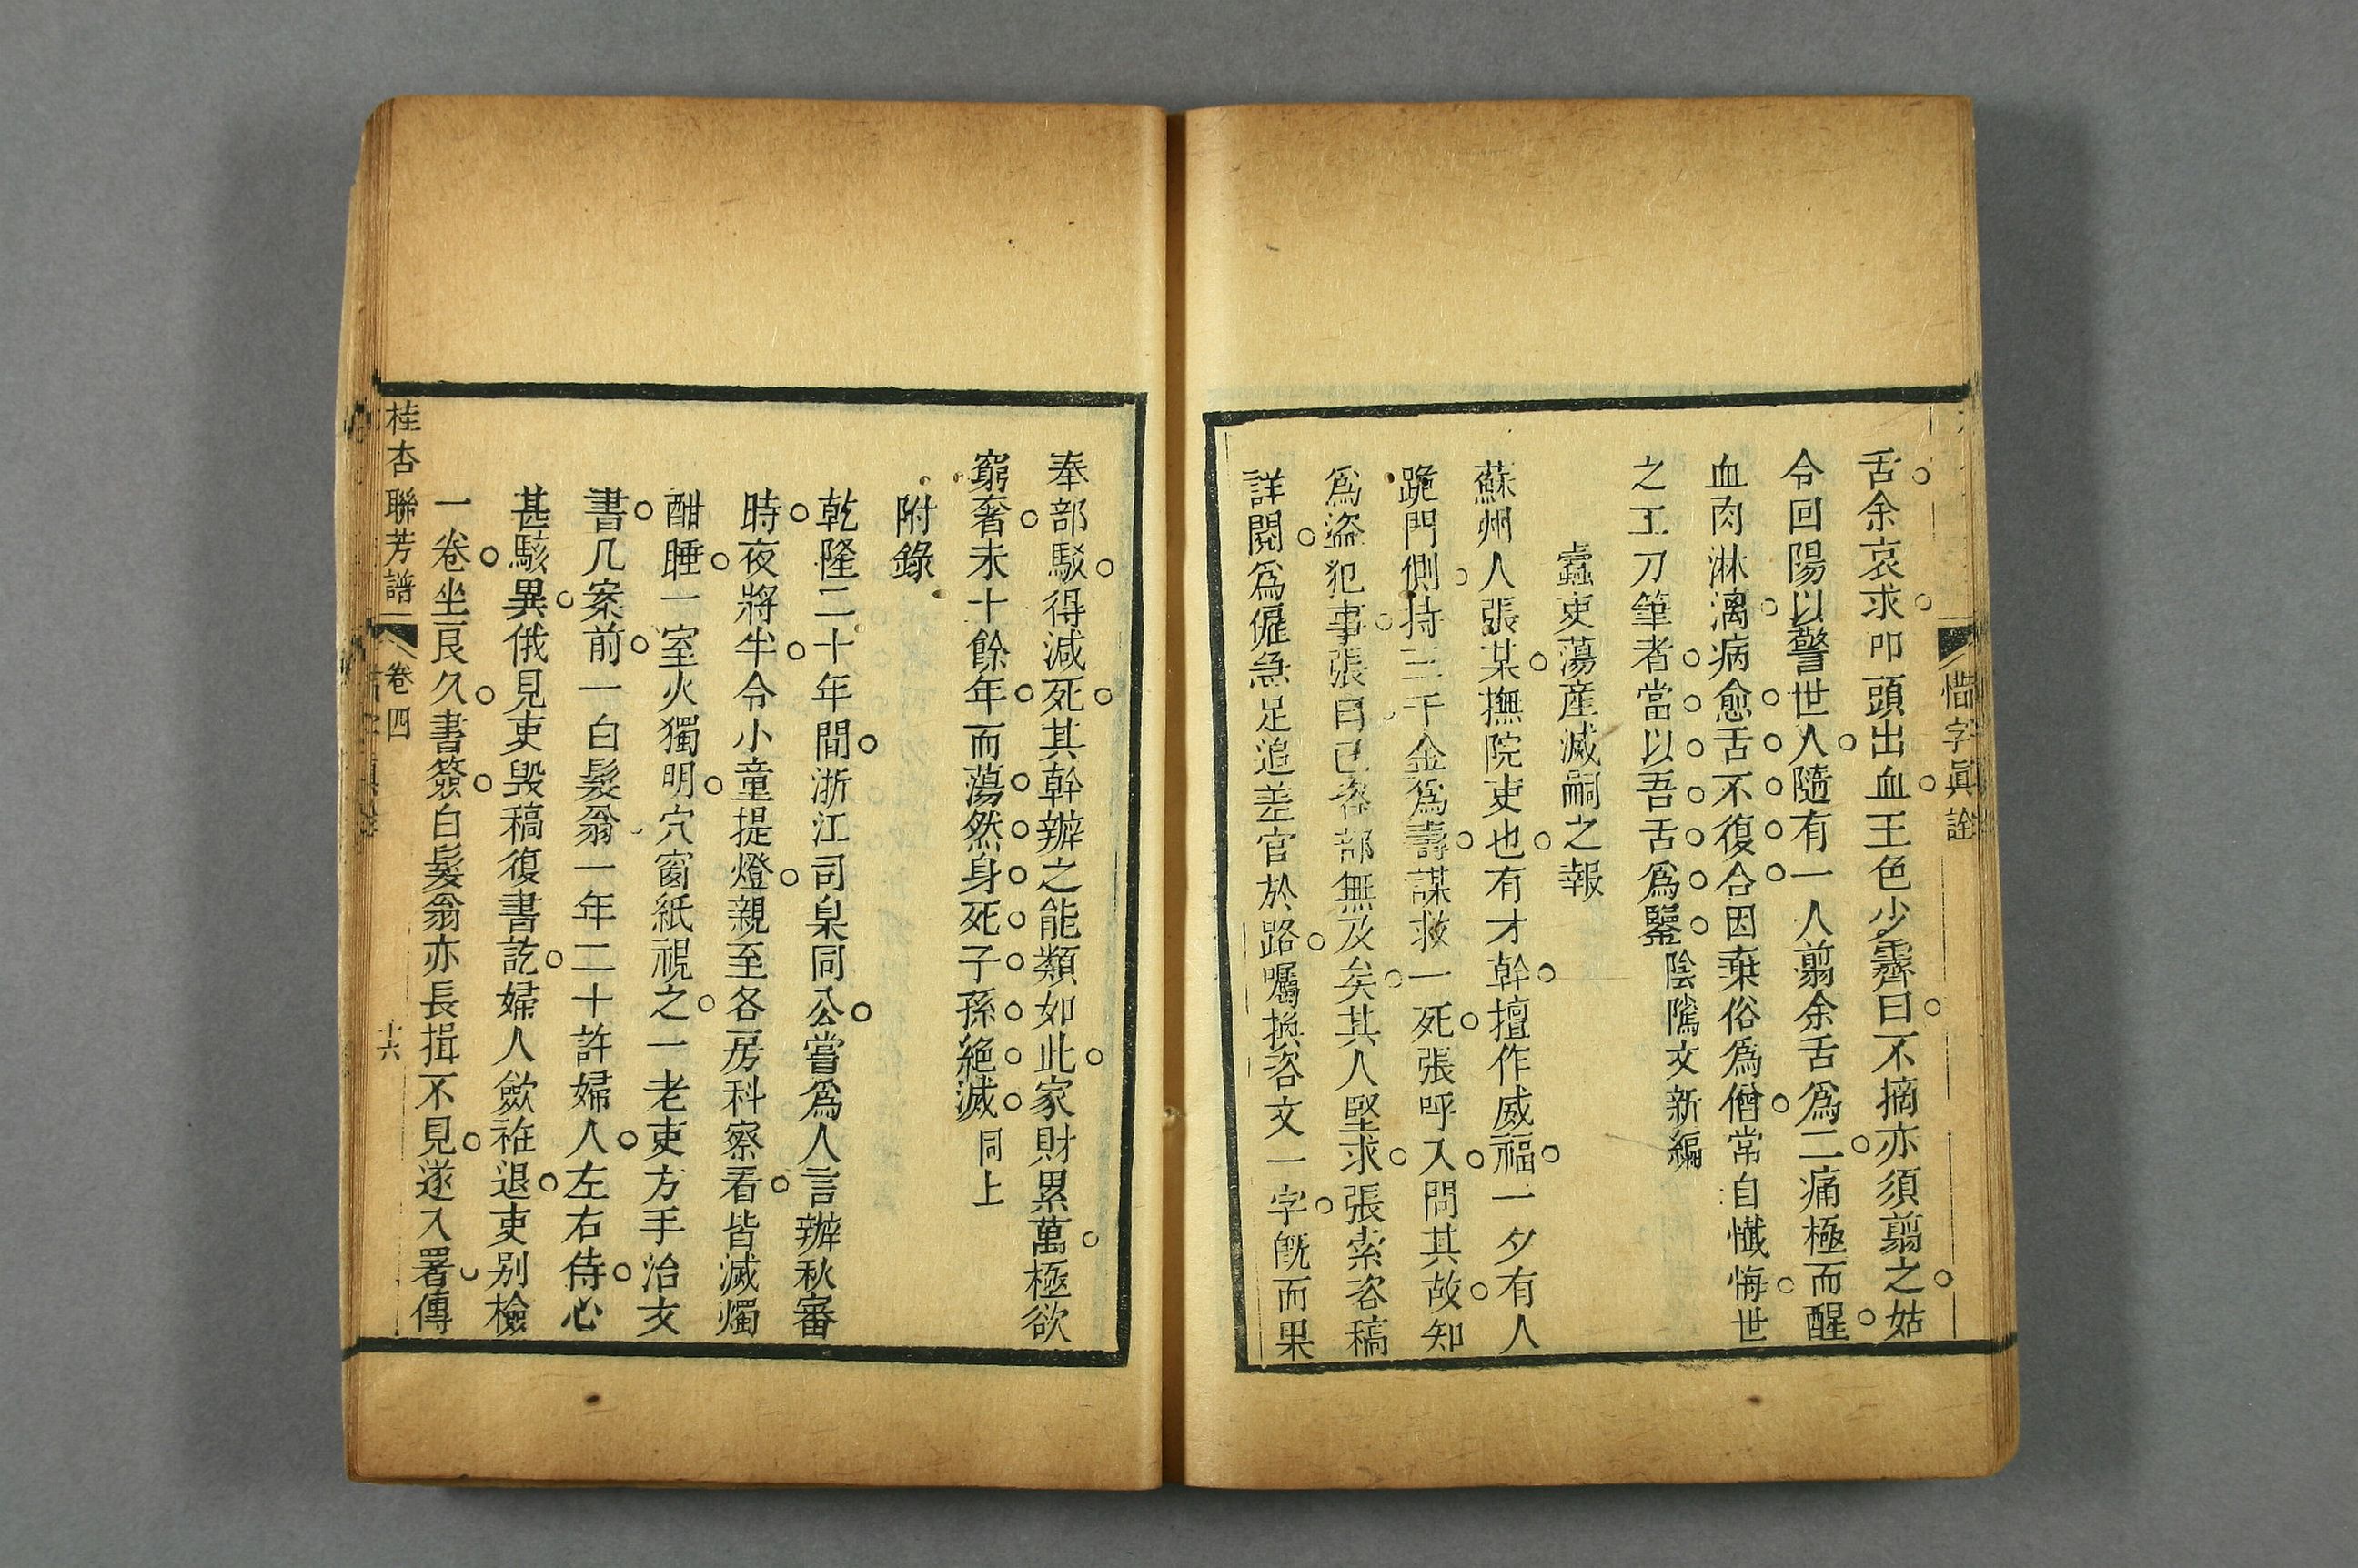 惜字眞詮
舌余哀求叩頭出血王色少霽曰不摘亦須翦之姑
令回陽以警世人隨有一人翦余舌爲二痛極而醒
血肉淋漓病愈舌不復合因棄俗爲僧常自懺悔世
之工刀筆者當以吾舌爲鑒陰隲文新編
蠹吏蕩産滅嗣之報
蘇州人張某撫院吏也有才幹擅作威福一夕有人
跪門側持三千金爲壽謀救一死張呼入問其故知
爲盜犯事張曰已咨部無及矣其人堅求張索咨稿
詳閱爲僱急足追差官於路囑換咨文一字旣而果
奉部駁得減死其幹辦之能類如此家財累萬極欲
窮奢未十餘年而蕩然身死子孫絶滅同上
附錄
乾隆二十年間浙江司臬同公嘗爲人言辦秋審
時夜將半令小童提燈親至各房科察看皆滅燭
酣睡一室火獨明穴窗紙視之一老吏方手治文
書几案前一白髮翁一年二十許婦人左右侍心
甚駭異俄見吏毁稿復書訖婦人歛袵退吏别檢
一卷坐良久書簽白髮翁亦長揖不見遂入署傳
桂杏聯芳譜
卷四
十六